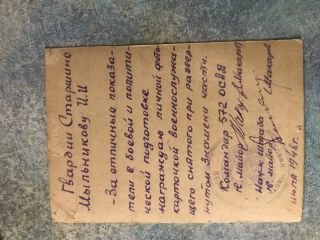 Гвардии Старшине
Мыльникову И.И
-За отличные показа-
тели в боевой и полити-
ческой подготовке
награждаю личной фото-
карточкой военнослужа-
щего снятого при развер-
нутом Знамени части.
Командир 572
майор
Нач-к штаба
майор
июля 1946г.